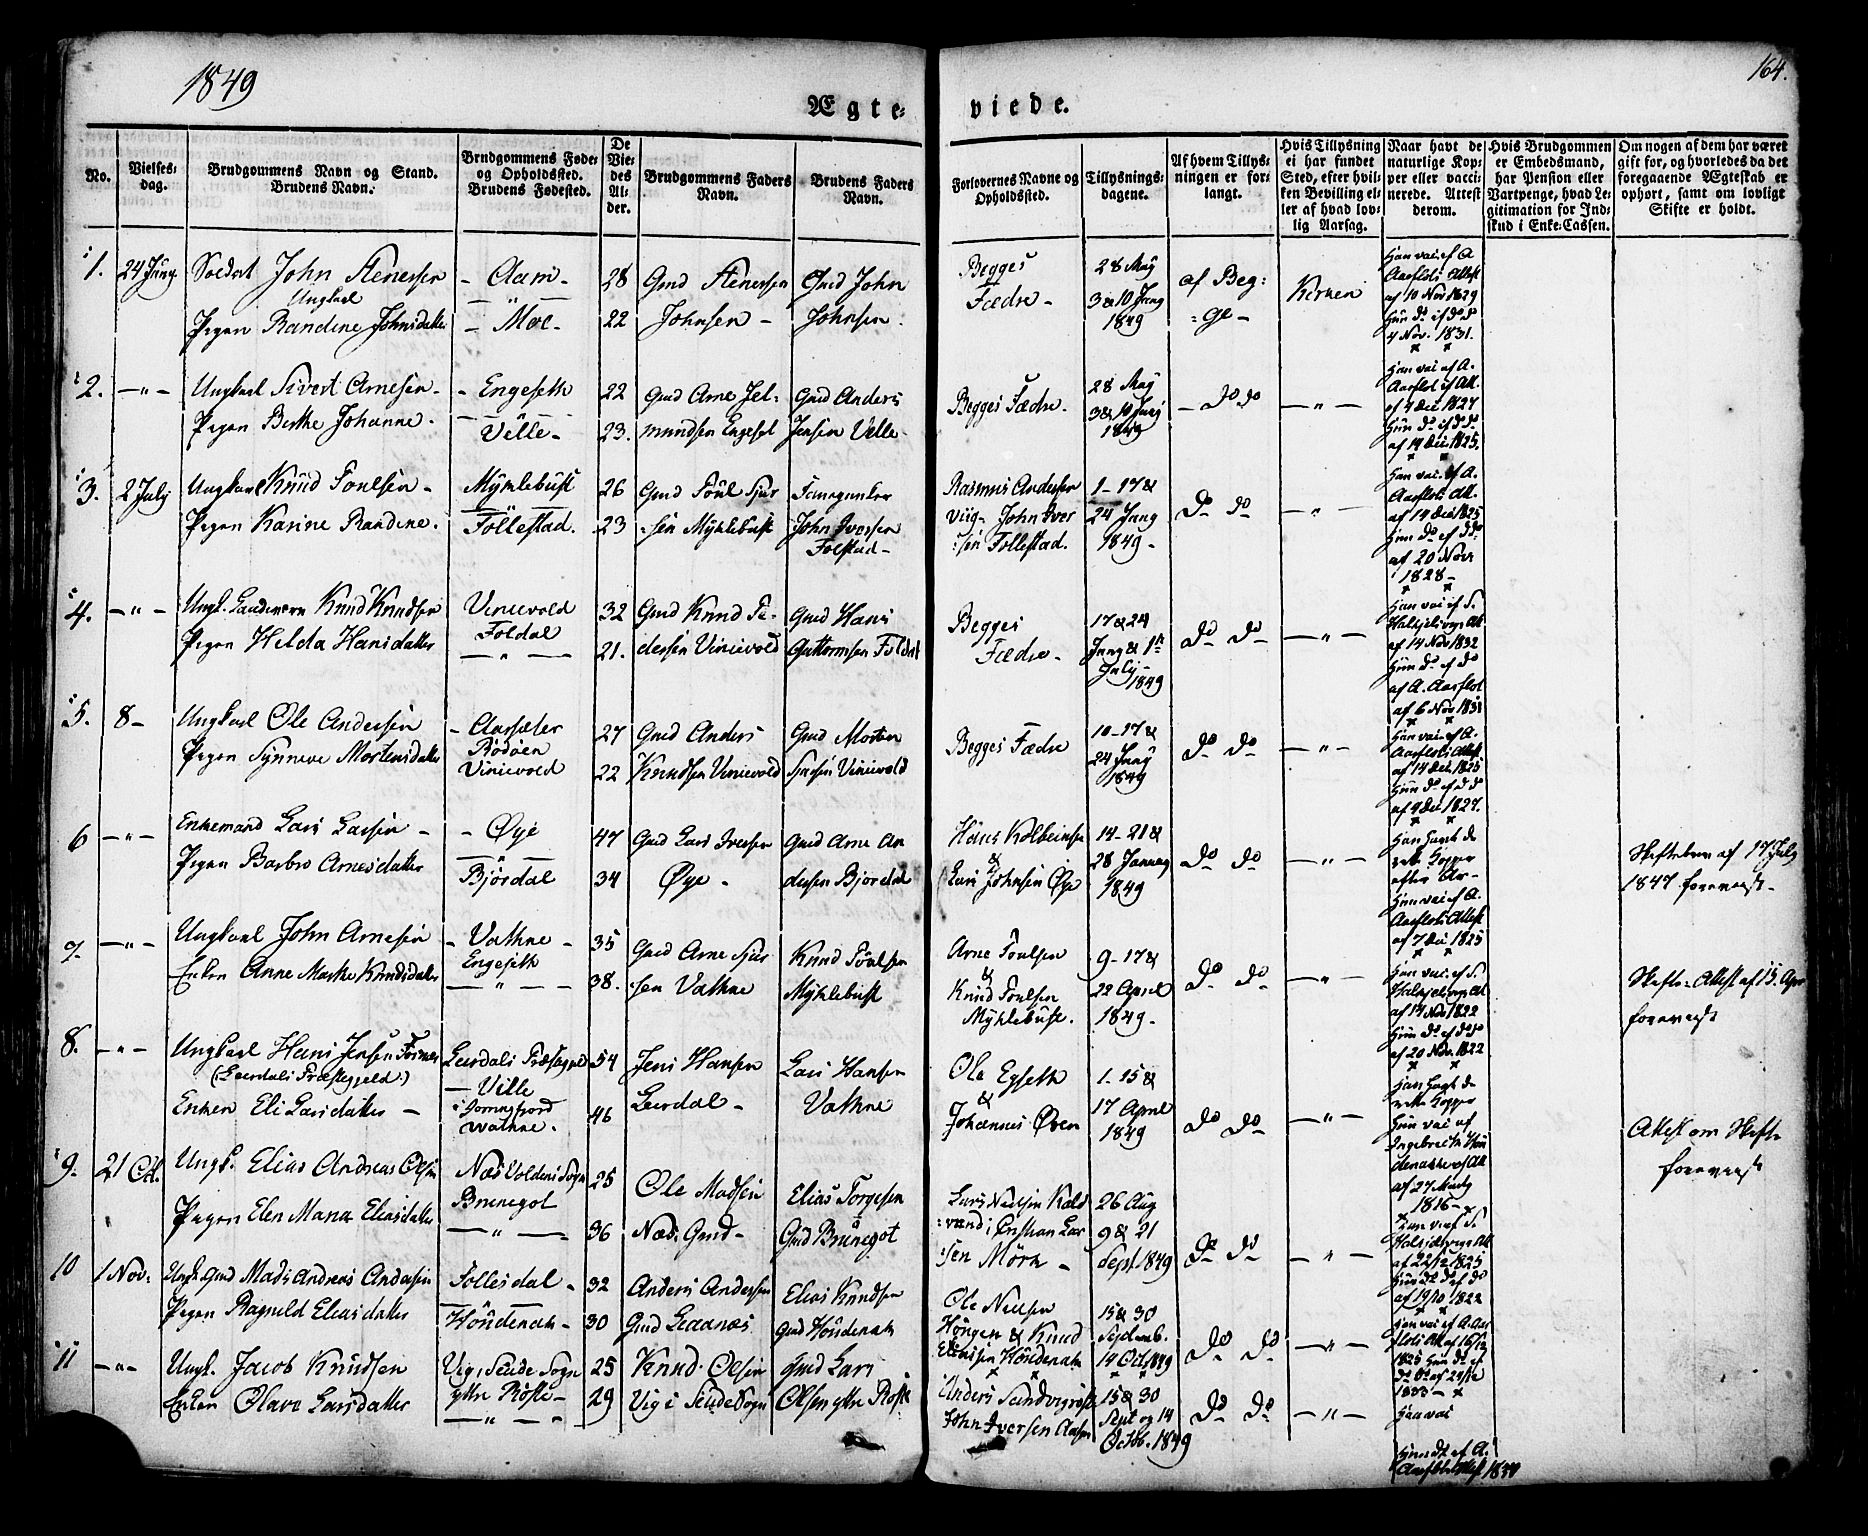 1849
164.
Ægte=
viede.
No.
Vielses=
dag.
Brudgommens Navn og Stand.
Brudens Navn.
Brudgommens Føde=
og Opholdssted.
Brudens Fødested.
De
Vie=
des
Al=
der.
Brudgommens Faders
Navn.
Brudens Faders
Navn.
Forlovernes Navne og
Opholdssted.
Tillysnings=
dagene.
Af hvem Tillys=
ningen er for=
langt.
Hvis Tillysning
ei har fundet
Sted, efter hvil=
ken Bevilling el=
ler af hvad lov=
lig Aarsag.
Naar havt de
naturlige Kop=
per eller vacci=
nerede. Attest
derom.
Hvis Brudgommen
er Embedsmand,
har Pension eller
Vartpenge, hvad Le=
gitimation for Ind=
skud i Enke=Cassen.
Om nogen af dem har været
gift før, og hvorledes da det
foregaaende Ægteskab er
ophørt, samt om lovligt
Skifte er holdt.
1. 24 Juny
Soldat John Stenersen
Ungkarl
Pigen Randine Johnsdatter
- Aam -
- Moe -
28
22
Gmd Stenersen
Johnsen -
Gmd John
Johnsen.
Begges
Fædre -
28 May
3 & 10 Juny
1849
af Beg:
:ge -
Kirken
Han vac: af A.
Aarflots Attest
af 10 Nov 1829
Hun do af do do
4 Nov. 1831.
2. - " -
Ungkarl Sivert Arnesen -
Pigen Birthe Johanne -
- Engeseth
Velle -
22
23.
Gmd Arne Jel-
mundsen Engeset
Gmd Anders
Jensen Velle -
Begges Fædre -
28 May
3 & 10 Juny
1849
- do do
- " -
Han vac: af A.
Aarflot af Att.
af 4 Dec 1827
Hun do af do do
af 14 Dec. 1825.
3. 2 July
Ungkarl Knud Poulsen -
Pigen Karine Randine.
Myklebust
Follestad.
26
23
Gmd Poul Sjur
:sen Myklebust
John Iversen
Folstad -
Rasmus Andersen
Viig - John Iver
:sen Follestad.
1 - 17 &
24 Juny
1849 -
do do
- " -
Han vac. af A.
Aarflots Att.
af 14 Dec 1825
Hun do af do
af 20 Nov
1828 -
4. - " -
Ungk. Landværn Knud Knudsen
Pigen Helda Hansdatter
Vinievold
Foldal
- " -
32
21.
Gmd Knud Pe-
dersen Vinievold
Gmd Hans
Guttormsen Foldal
Begges
Fædre -
17 & 24
Juny & 1st
July -
1849
do do
- " -
Han vac af S.
af 14 Nov 1832
Hun do af do
af A. Aarflot
af 6 Nov 1831
5. 8 -
Ungkarl Ole Andersen
Pigen Synneve Mortensdatter
- Aarsæter
Rødøen
Vinievold
27
22
Gmd Anders
Knudsen Vinievold
Gmd Morten
Sjursen Vinievold
Begges Fædre
10 - 17 &
24 Juny
1849
do do
- " -
Han vac. af A.
Aarflots Attest
af 14 Dec. 1825
Hun do af do do
af 4 Dec 1827.
6 - " -
Enkemand Lars Larsen -
Pigen Barbro Arnesdatter
- Øye
- " -
Bjørdal
47
34
Gmd Lars Iversen
Øye -
Gmd Arne An
dersen Bjørdal
Hans Kolbeinsen
&
Lars Johnsen Øye
14 - 21 &
28 January
1849
do do
- " -
Han havt de
rette Kopper
efter Ar -
Hun vac: af A.
Aarflots Attest
af 7 Dec: 1825
Skiftebrev af 17 July
1847 foreviist -
7. - " -
Ungkarl John Arnesen
Enken Anne Marthe Knudsdatter
- Vathne -
Engeseth
- " -
35
38.
Gmd Arne Sjur
:sen Vathne
Knud Poulsen
Myklebust
Arne Poulsen
&
Knud Poulsen
Myklebust.
9 - 17 &
22 April
1849 -
do do
- " -
Han vac. af S.
af 14 Nov 1822
Hun do af do do
af 20 Nov. 1822
Skifte-Attest af 15 Apr
foreviist
8. - " -
Ungkarl Hans Jensen
(: Leerdals Præstegjeld :)
Enken Eli Larsdatter -
Leerdals Præstegjeld
- Velle
Vathne.
54
46
Jens Hansen
Leerdal -
Lars Hansen
Vathne
Ole Egseth
&
Johannes Øren
1 - 15 &
17 April
1849
do do
- " -
Han havt de
rette Kopper
Hun vac af
af 27 Marty
1816 -
Attest om Skifte
foreviist
9. 21 Oct.
Ungk. Elias Andreas Olsen
Pigen Elen Maria Eliasdatter
Næs Voldens Sogn
Brunegot
- " -
25
36
Ole Madsen
Næs. Gmd -
Elias Torgesen
Gmd Brunegot
Lars Nielsen Kald
:vand; Cristian Lar
:sen Mörk -
26 Aug
9 & 21
Sept 1849
do do
- " -
Han vac af S.
Hun do af do
af 19/10 1822
10 1 Nov:
Ungk. Gmd Mads Andreas Andersen
Pigen Ragnild Eliasdatter
Follesdal -
Houdenak -
32
30
Anders Andersen
Gmd Leanæs
Elias Knudsen
Gmd Houdenak
Ole Nielsen
& Knud
Eliassen Houdenak
15 & 30
Septemb.
14 Oct 1849
do do
- " -
11 - " -
Ungk. Jacob Knudsen
Enken Olave Larsdatter
Vig i Seude Sogn
ytre Røste -
- " -
25
29
Knud Olsen
Vig i Seude Sogn
Gmd Lars
Olsen ytre Røste
Anders
John Iversen
15 & 30
Sept og 14
Octob. 1849
do do
- " -
Han vac
Hun do af A.